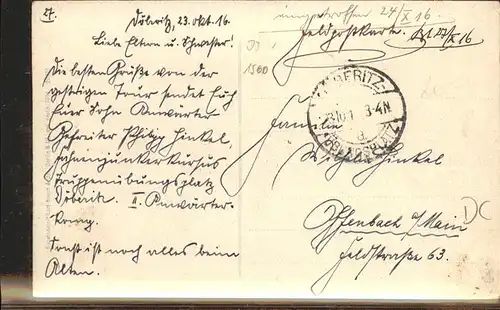 27.
Döberitz, 23. Okt. 16.
Liebe Eltern u. Schwester!
Die besten Grüße von der
gestrigen Tour sendet Euch
Euer Sohn Anwärter
Gefreiter Philipp Hinkel,
Fahnenjunkerkursus
Truppenübungsplatz
Döberitz. II. Anwärter-
komp.
Sonst ist noch alles beim
Alten.
eingetroffen 24/X 16
Feldpostkarte. 27/X 16
1500
DÖBERITZ
3-4N
ÜBUNGSPLATZ
Familie
Hinkel
Offenbach a/Main
Feldstraße 63.
DC